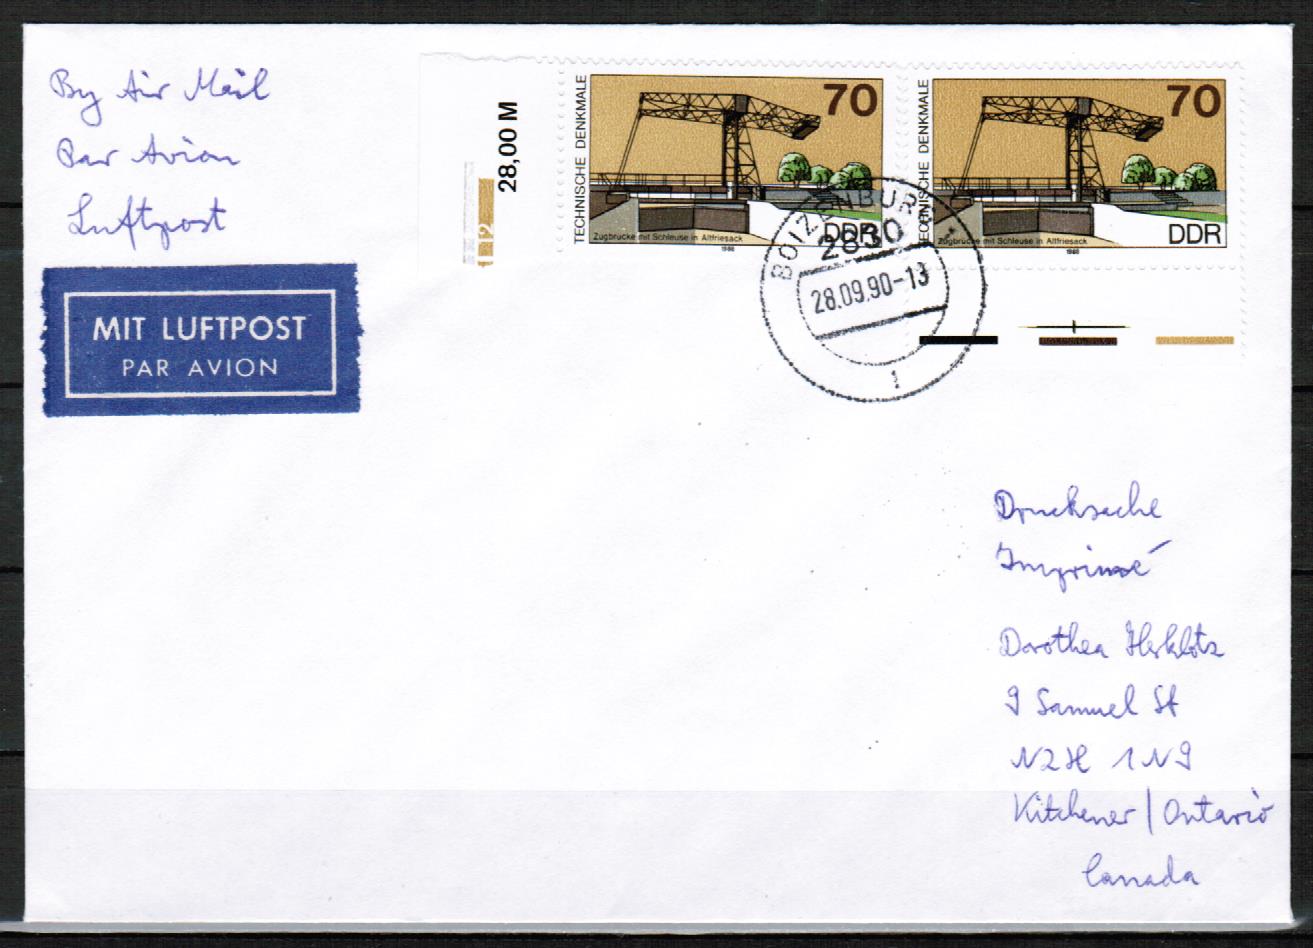 By Air Mail
Par Avion
Luftpost
MIT LUFTPOST
PAR AVION
28,00 M
2
TECHNISCHE DENKMALE
70
Zugbrücke mit Schleuse in Altfriesack
DDR
1988
TECHNISCHE DENKMALE
70
Zugbrücke mit Schleuse in Altfriesack
DDR
1988
BOIZENBURG
2830
28.09.90-13
1
Drucksache
Imprimé
Dorothea Herklotz
9 Samuel St
N2H 1N9
Kitchener / Ontario
Canada